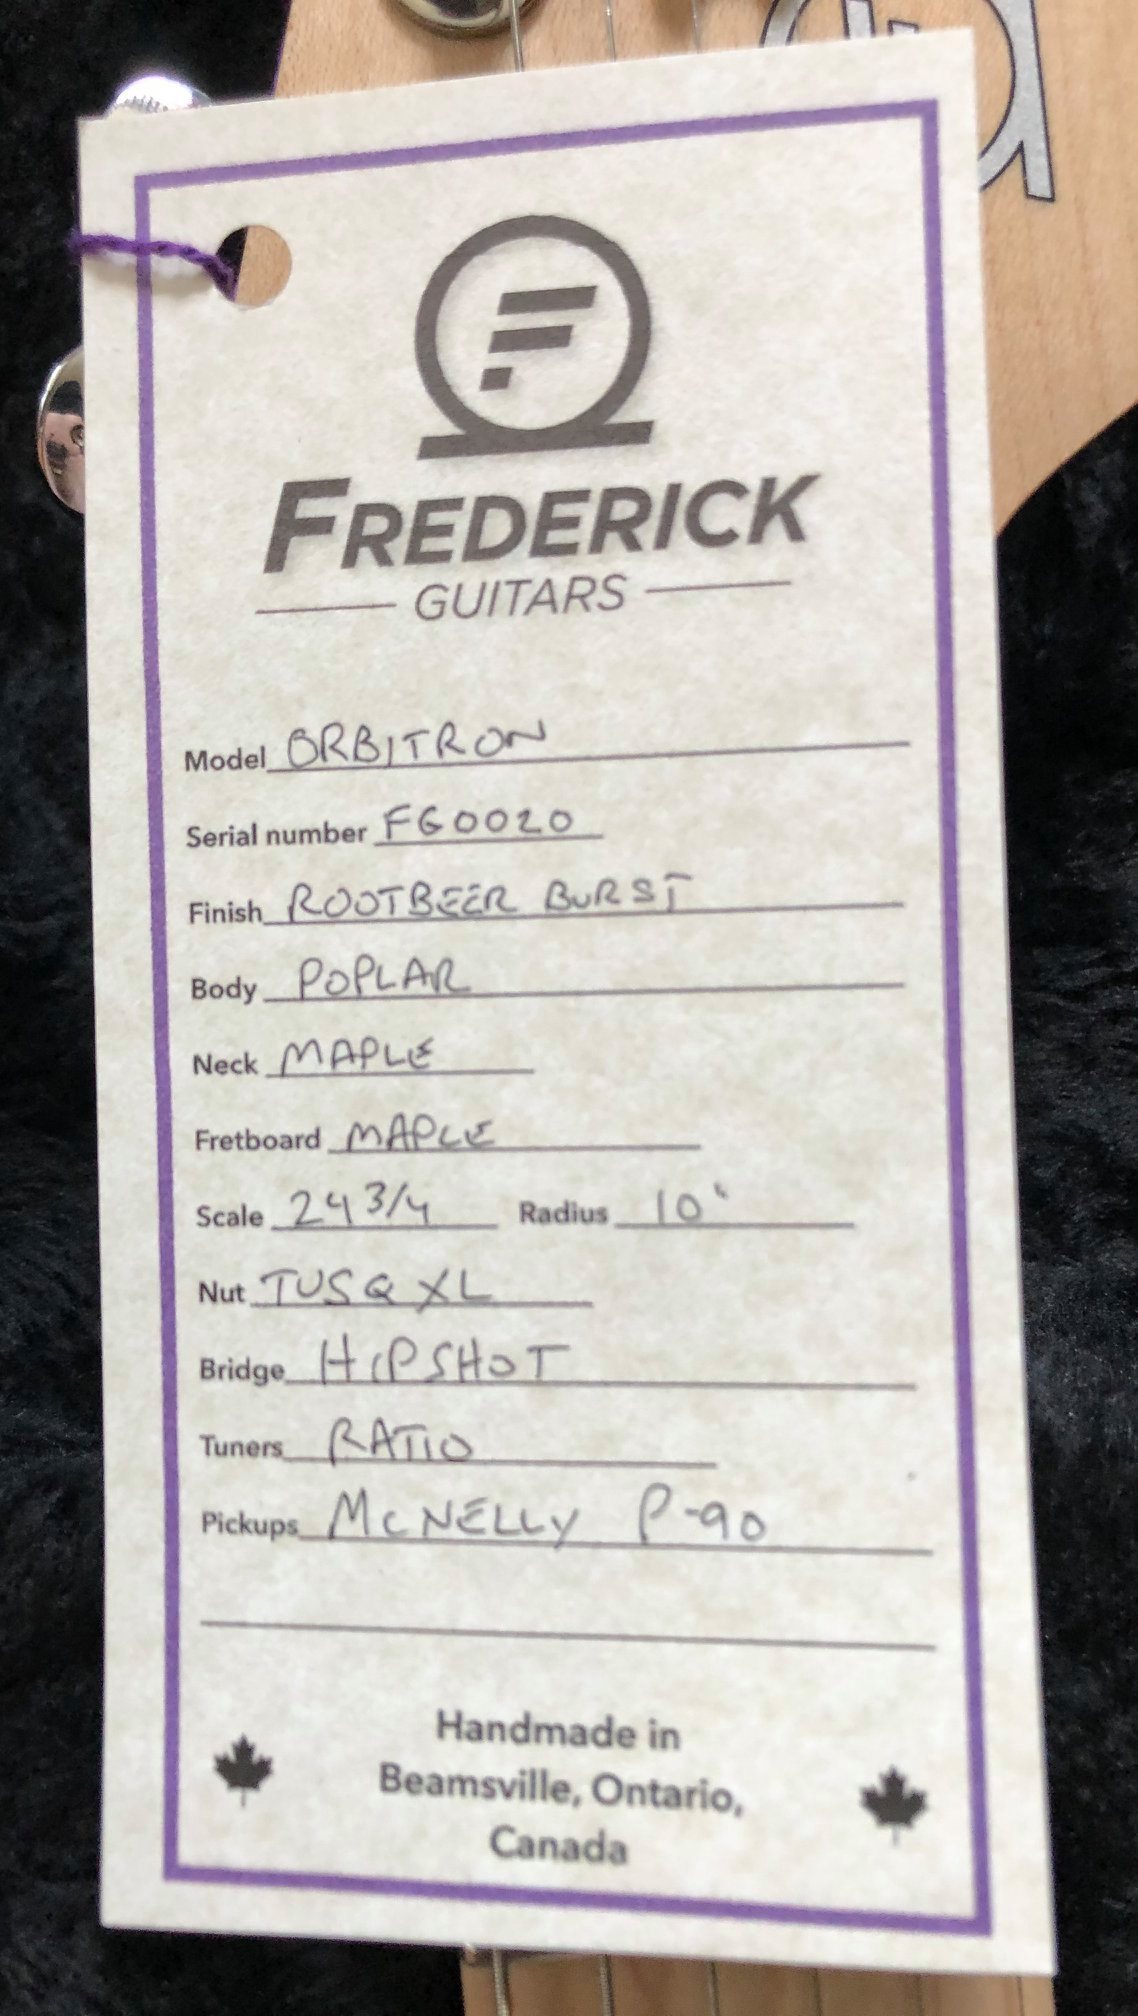 F
FREDERICK
GUITARS
Model ORBITRON
Serial number FG0020
Finish ROOTBEER BURST
Body POPLAR
Neck MAPLE
Fretboard MAPLE
Scale 24 3/4 Radius 10"
Nut TUSQ XL
Bridge HIPSHOT
Tuners RATIO
Pickups MCNELLY P-90
Handmade in
Beamsville, Ontario,
Canada